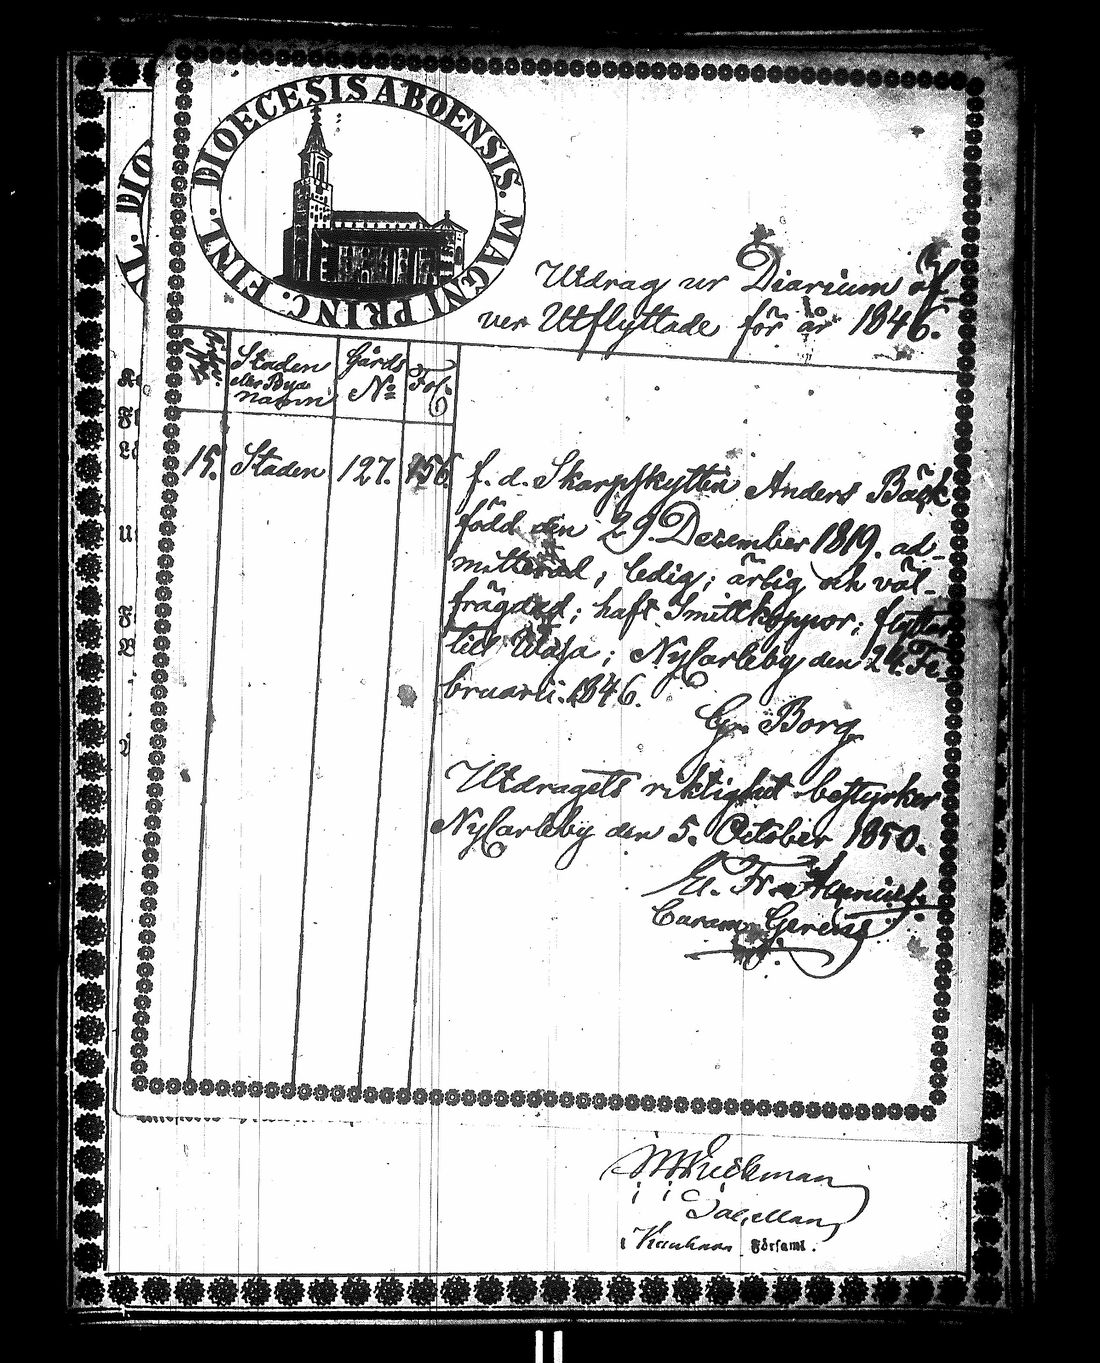 DIOECESIS ABOENSIS. MAGNI PRINC. FINL.
Utdrag ur Diarium öf-
ver Utflyttade för år 1846.
Staden
eller Byns
namn
Gårds
No
Fol.
15. Staden 127. 156.
f. d. Skarpskytten Anders Bäck
född den 29. December 1819. ad-
mitterad; ledig; ärlig och väl-
frägdad; haft Smittkoppor; flyttar
till Wasa; NyCarleby den 24. Fe-
bruarii. 1846.
G. Borg
Utdragets riktighet bestyrker
NyCarleby den 5. October 1850.
El. Fr.
Curam Gerens
i
Församl.